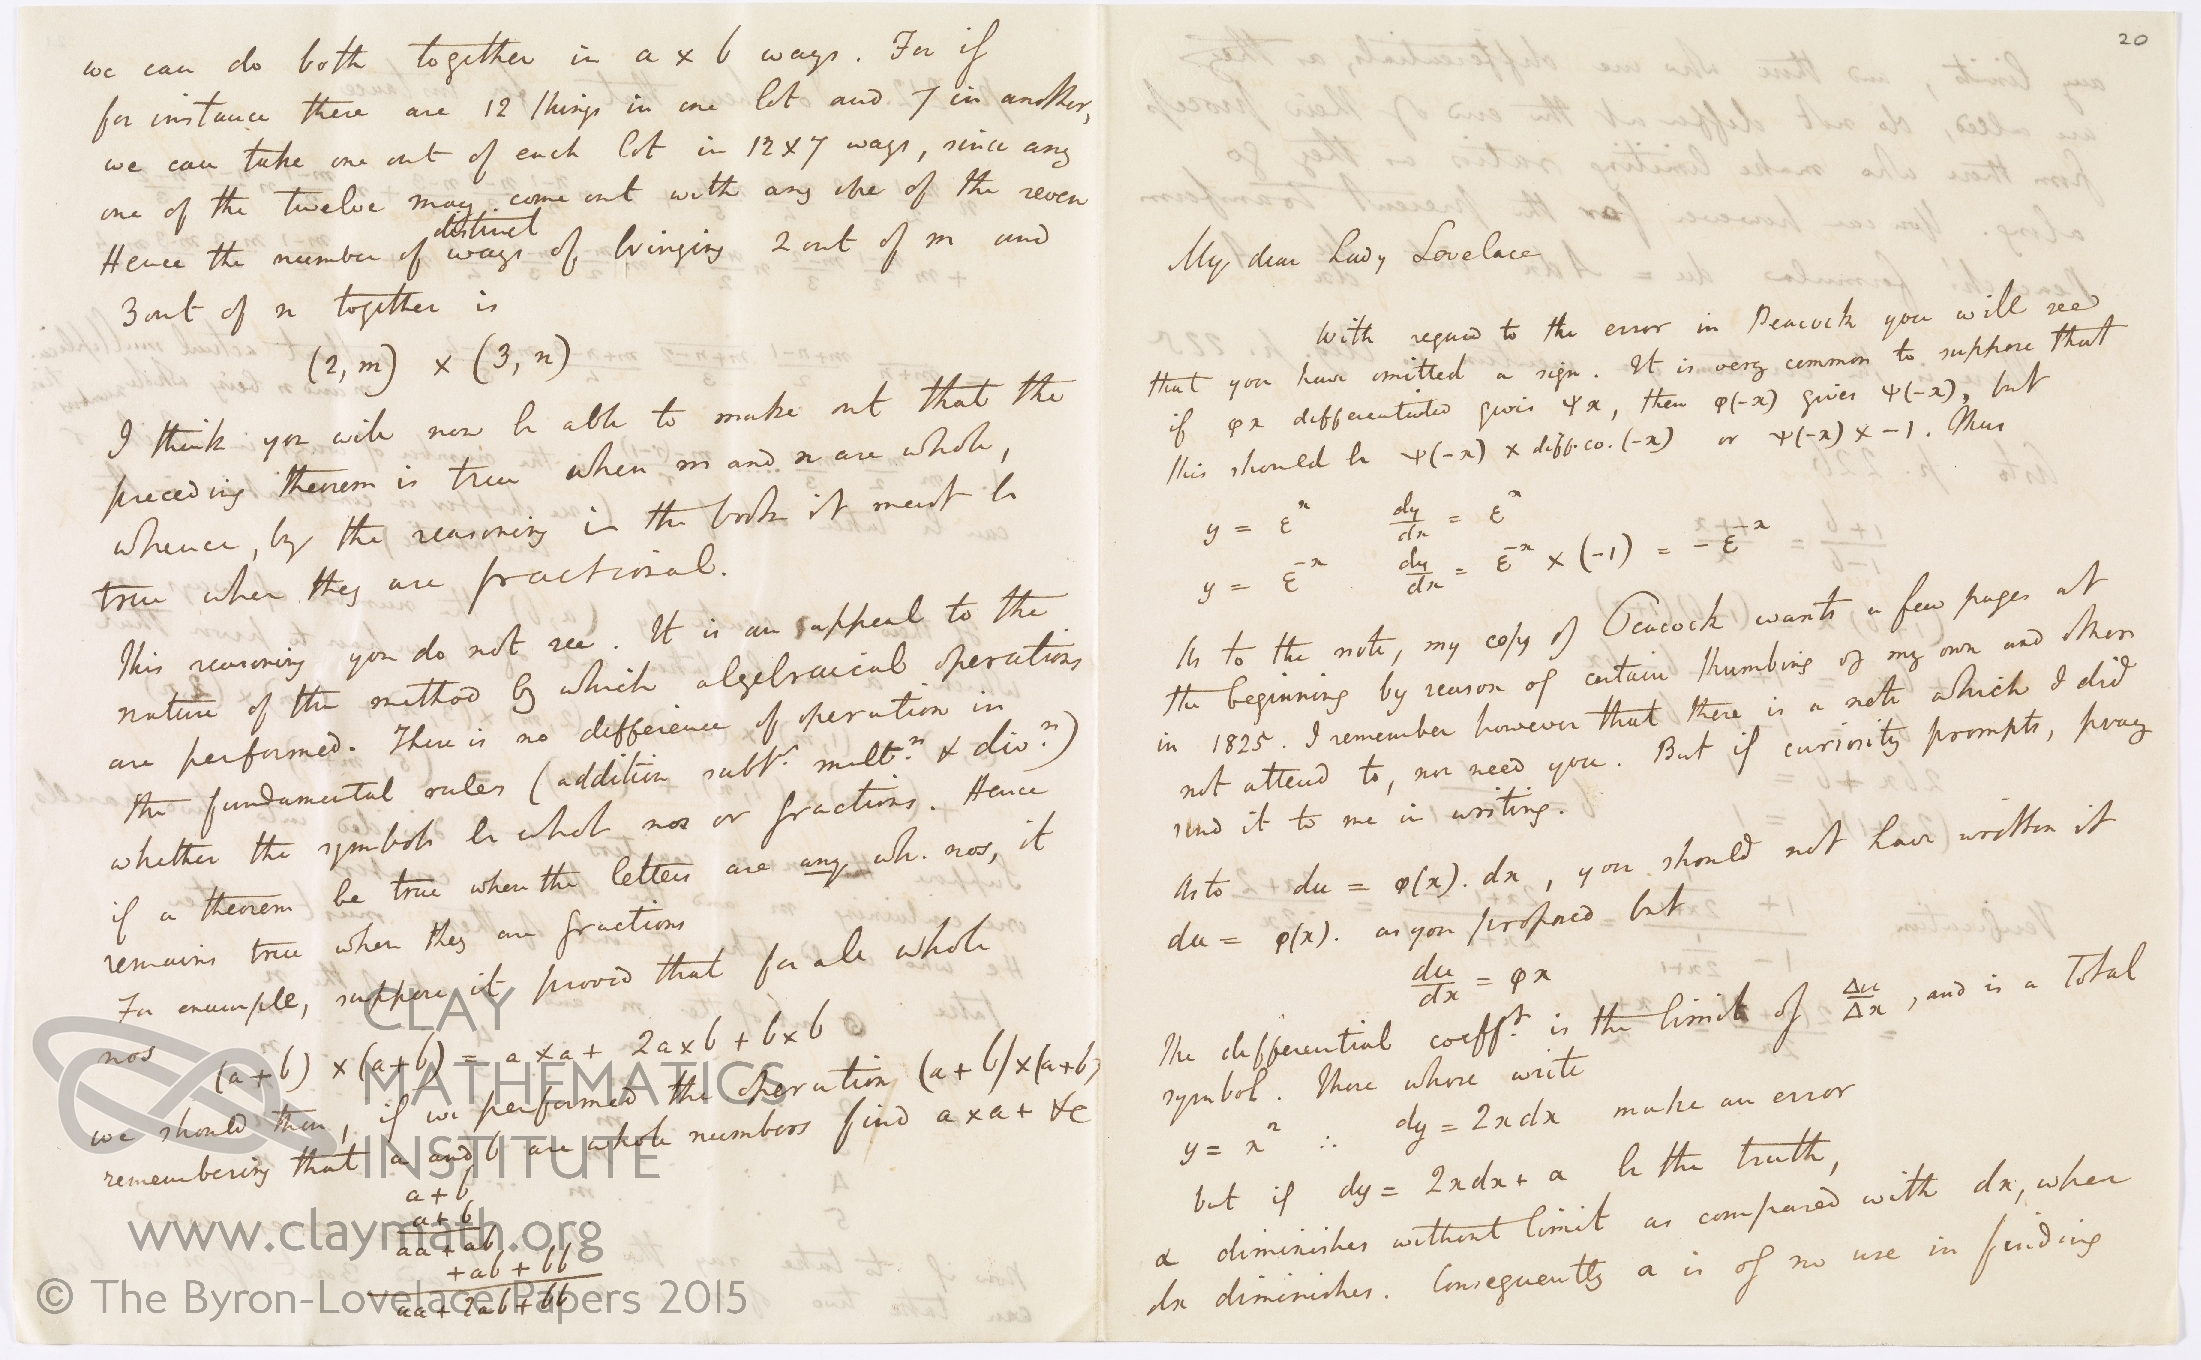 we can do both together in a × b ways. For if
for instance there are 12 things in one lot and 7 in another,
we can take one out of each lot in 12×7 ways, since any
one of the twelve may come out with any one of the seven
distinct
Hence the number of ways of bringing 2 out of m and
3 out of n together is
(2, m) × (3, n)
I think you will now be able to make out that the
preceding theorem is true when m and n are whole,
whence, by the reasoning in the book it must be
true when they are fractional.
This reasoning you do not see. It is an appeal to the
nature of the method by which algebraical operations
are performed. There is no difference of operation in
the fundamental rules (addition subtr. multn. & divn.)
whether the symbols be whol nos or fractions. Hence
if a theorem be true when the letters are any wh. nos, it
remains true when they are fractions
For example, suppose it proved that for all whole
nos (a+b) × (a+b) = a×a + 2a×b + b×b
we should then, if we performed the operation (a+b)×(a+b)
remembering that a and b are whole numbers find a×a+ &c
a+b
a+b
aa+ab
+ab+bb
aa+2ab+bb
20
My dear Lady Lovelace
With regard to the error in Peacock you will see
that you have omitted a sign. It is very common to suppose that
if φx differentiated gives ψx, then φ(-x) gives ψ(-x), but
this should be ψ(-x) × diff. co. (-x) or ψ(-x) × -1. Thus
y = ε^x dy/dx = ε^x
y = ε^-x dy/dx = ε^-x × (-1) = -ε^-x
As to the note, my copy of Peacock wants a few pages at
the beginning by reason of certain thumbing of my own and others
in 1825. I remember however that there is a note which I did
not attend to, nor need you. But if curiosity prompts, pray
send it to me in writing.
As to du = φ(x).dx, you should not have written it
du = φ(x). as you proposed but
du/dx = φx
The differential coefft. is the limit of Δu/Δx, and is a total
symbol. Those whose write
y = x² ∴ dy = 2xdx make an error
but if dy = 2xdx + α be the truth,
α diminishes without limit as compared with dx, when
dx diminishes. Consequently α is of no use in finding
CLAY
MATHEMATICS
INSTITUTE
www.claymath.org
© The Byron-Lovelace Papers 2015